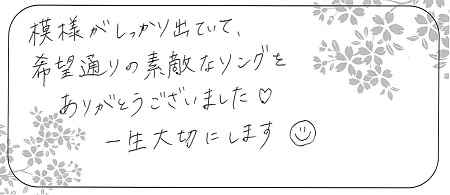 模様がしっかり出ていて、
希望通りの素敵なリングを
ありがとうございました♡
一生大切にします☺